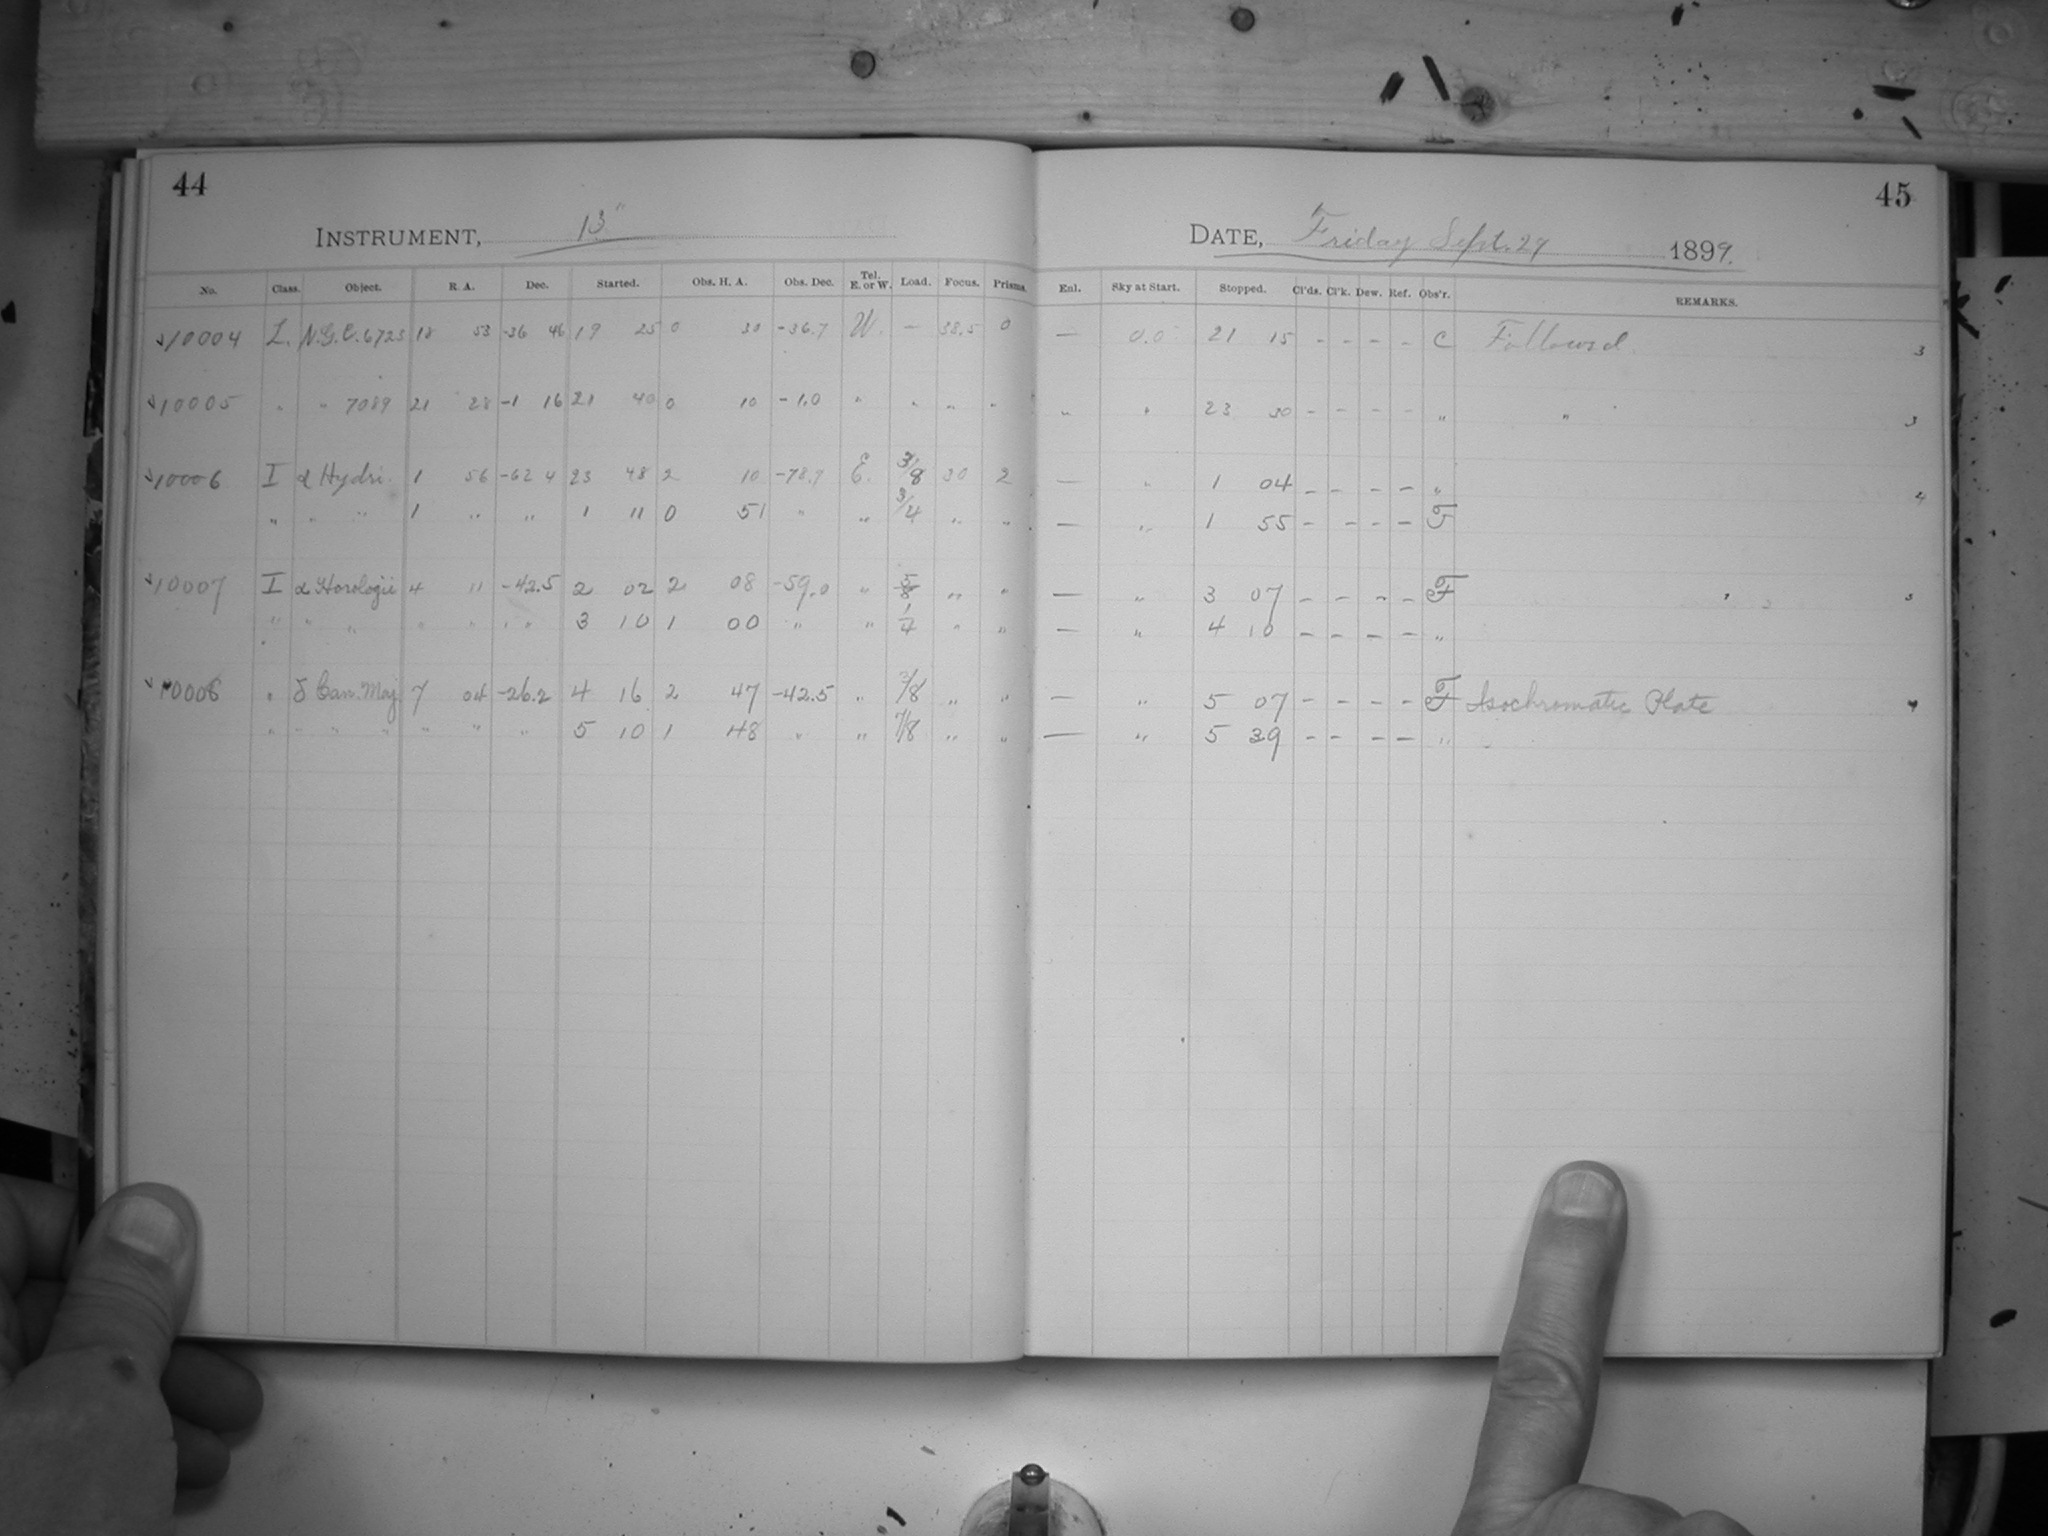 44
INSTRUMENT, 13"
No. Class. Object. R. A. Dec. Started. Obs. H. A. Obs. Dec. Tel. E. or W. Load. Focus. Prisms.
10004 L. N.G.C. 6723 18 53 -36 46 19 25 0 30 -36.7 W. — 38.5 0
10005 " " 7089 21 28 -1 16 21 40 0 10 -1.0 " " " "
10006 I α Hydri. 1 56 -62 4 23 48 2 10 -78.7 E. 3/8 30 2
" " " 1 " " 1 11 0 51 " " 3/4 " "
10007 I α Horologii 4 11 -42.5 2 02 2 08 -59.0 " 5/8 " "
" " " " " " 3 10 1 00 " " 1/4 " "
10008 " δ Can. Maj. 7 04 -26.2 4 16 2 47 -42.5 " 3/8 " "
" " " " " " " 5 10 1 48 " " 7/8 " "
45
DATE, Friday Sept. 29 1899.
Enl. Sky at Start. Stopped. Cl'ds. Cl'k. Dew. Ref. Obs'r. REMARKS.
— 0.0 21 15 - - - - C Followed 3
" " 23 30 - - - - " " 3
— " 1 04 - - - - " 4
— " 1 55 - - - - F
— " 3 07 - - - - F 3
— " 4 10 - - - - "
— " 5 07 - - - - F Isochromatic Plate 4
— " 5 39 - - - - "